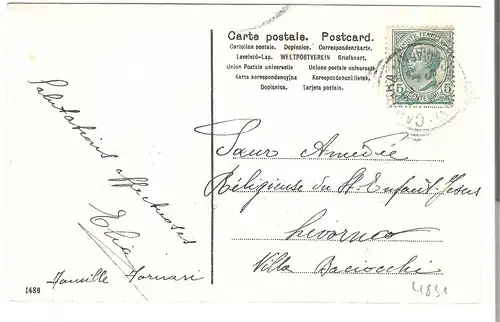 Carte postale. Postcard.
Cartolina postale. Dopisnice. Correspondenzkarte.
Levelező-Lap. WELTPOSTVEREIN Briefkaart.
Union Postale universelle Unione postale universale.
Karta korespondencyjna Korespondenčnílistek.
Dopisnica. Tarjeta postale.
POSTE ITALIANE
5 5
Salutations affectueuses
Elia
Famille Fornari
Sœur Amédée
Religieuse du St-Enfant-Jesus
Livorno
Villa Baciocchi
4891
1489